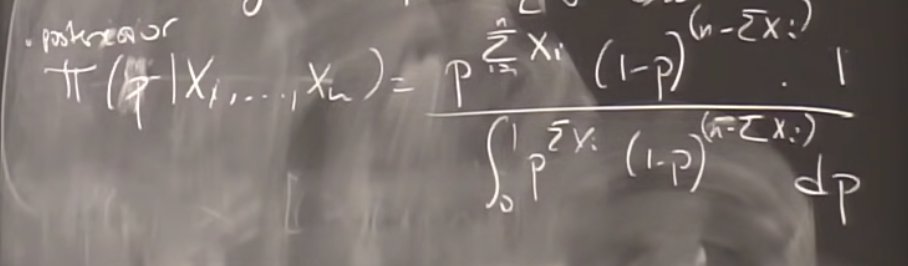 . posterior
π(p|X₁,...,Xₙ) = p^{\sum_{i=1}^{n} X_i} (1-p)^{(n-ΣX_i)} · 1
∫₀¹ p^{ΣX_i} (1-p)^{(n-ΣX_i)} dp